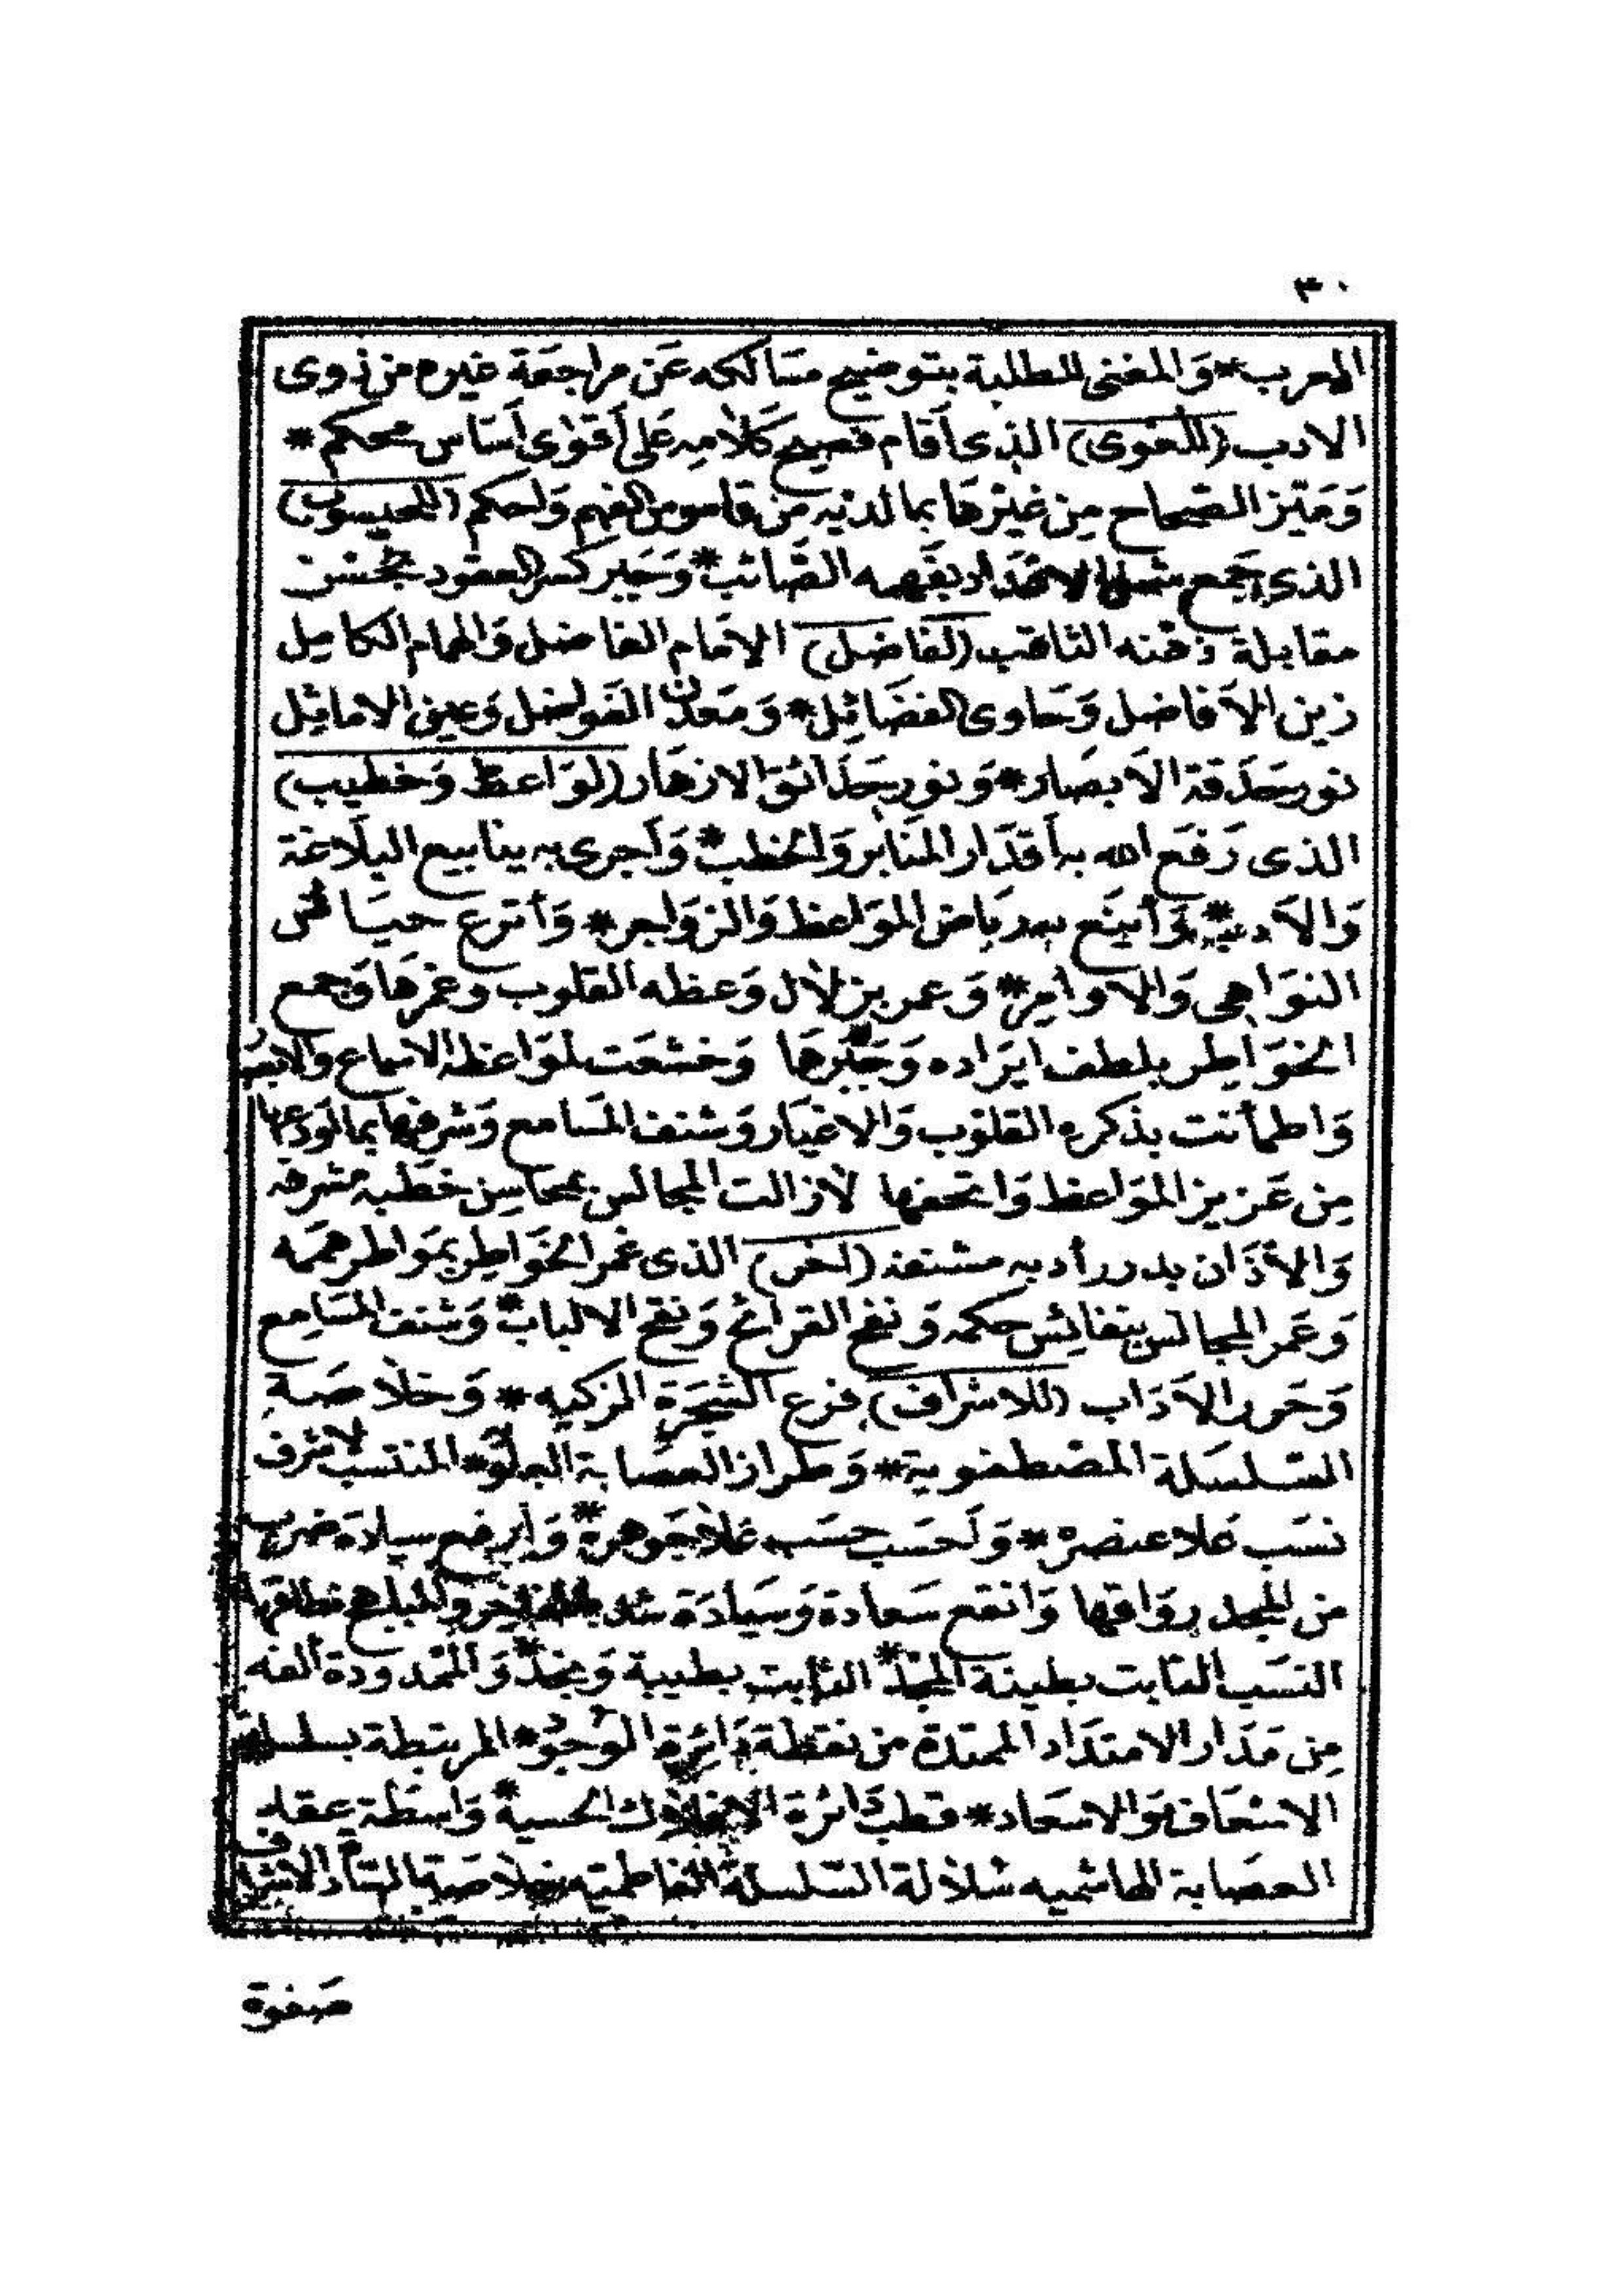 ٣٠
المعرب * وَالمغنى للطلبة بتوضيح مسَالكه عَن مراجعَة غيره من ذوى
الادب (للغوى) الذى أقام فصيح كلامِه عَلى أقوٰى أسَاس محكم *
وَميّز الصّحاح مِن غيْرهَا بما لديْه من قاموس الفهم وَالحكم (للحيسوبى)
الذى جَمع شمل الاعْدَاد بفَهمه الصَّائب * وَجَبر كسر العقود بحُسْن
مقابلة ذهنه الثاقب (لفاضل) الامَام الفاضل وَالهمام الكامِل
زين الأفاضل وَحَاوى الفضَائِل * وَمَعْدن الفوَاضل وَعين الاماثِل
نور حَدَقة الأبصَار * وَنور حَدَائق الازهَار (لوَاعظ وَخطيب)
الذى رَفعَ الله به أقدَار المنَابر وَالخطب * وَأجرى به ينابيع البلاغة
وَالأدب * وَأينَع به ريَاض الموَاعظ وَالزوَاجر * وَأترع حيَاض
النوَاهى وَالاوامِر * وَعمر بزلال وَعظه القلوب وغمرهَا وَجمع
الخوَاطِر بلطف ايرَاده وَجَبرهَا وَخشعَت لموَاعظه الاسماع وَالابصَا
وَاطمأنت بذكره القلوب وَالاغيَار وَشنف المسَامع وَشرفها بما اودعها
مِن عَزيز الموَاعظ وَاتحفها لازالت المجالس بمحاسِن خطبه مشرفه
وَالأذَان بدرر أدبه مشنفه (اخر) الذى غمر الخوَاطِر بموَاطر هممَه
وَعَمر المجالس بنفائِس حكمه وَنفخ القرائح وَنقح الالباب * وَشنف المسَامِع
وَحَرر الأدَاب (للاشراف) فرع الشجَرَة الزكيه * وَخلاصَة
السّلسَلة المصْطفوية * وَطراز العصَابة العلَوية * المنتسب لاشرف
نسَب عَلا عنصره * وَلحسَب حسَب غلا جَوهره * وَأرفع سيادَة ضرب
من المجد روَاقها وَانفع سَعادة وَسَيادَة شد نطاقها
النسَب الثابت بطينة المجْد * النابت بطيبة وَنجد * وَالممْدودة ألفه
مِن مَدَار الامتدَاد الممتدة من نقطة دَائِرة الوُجُود * المرتبطة بسلسلة
الاسْعَاف وَالاسعَاد * قطب دَائرة الافلاك الحسية * وَاسطَة عقد
العصَابة الهاشميه سُلالة السّلسلة الفاطميّه خلاصَة السَّادة الاشراف
صَفوة